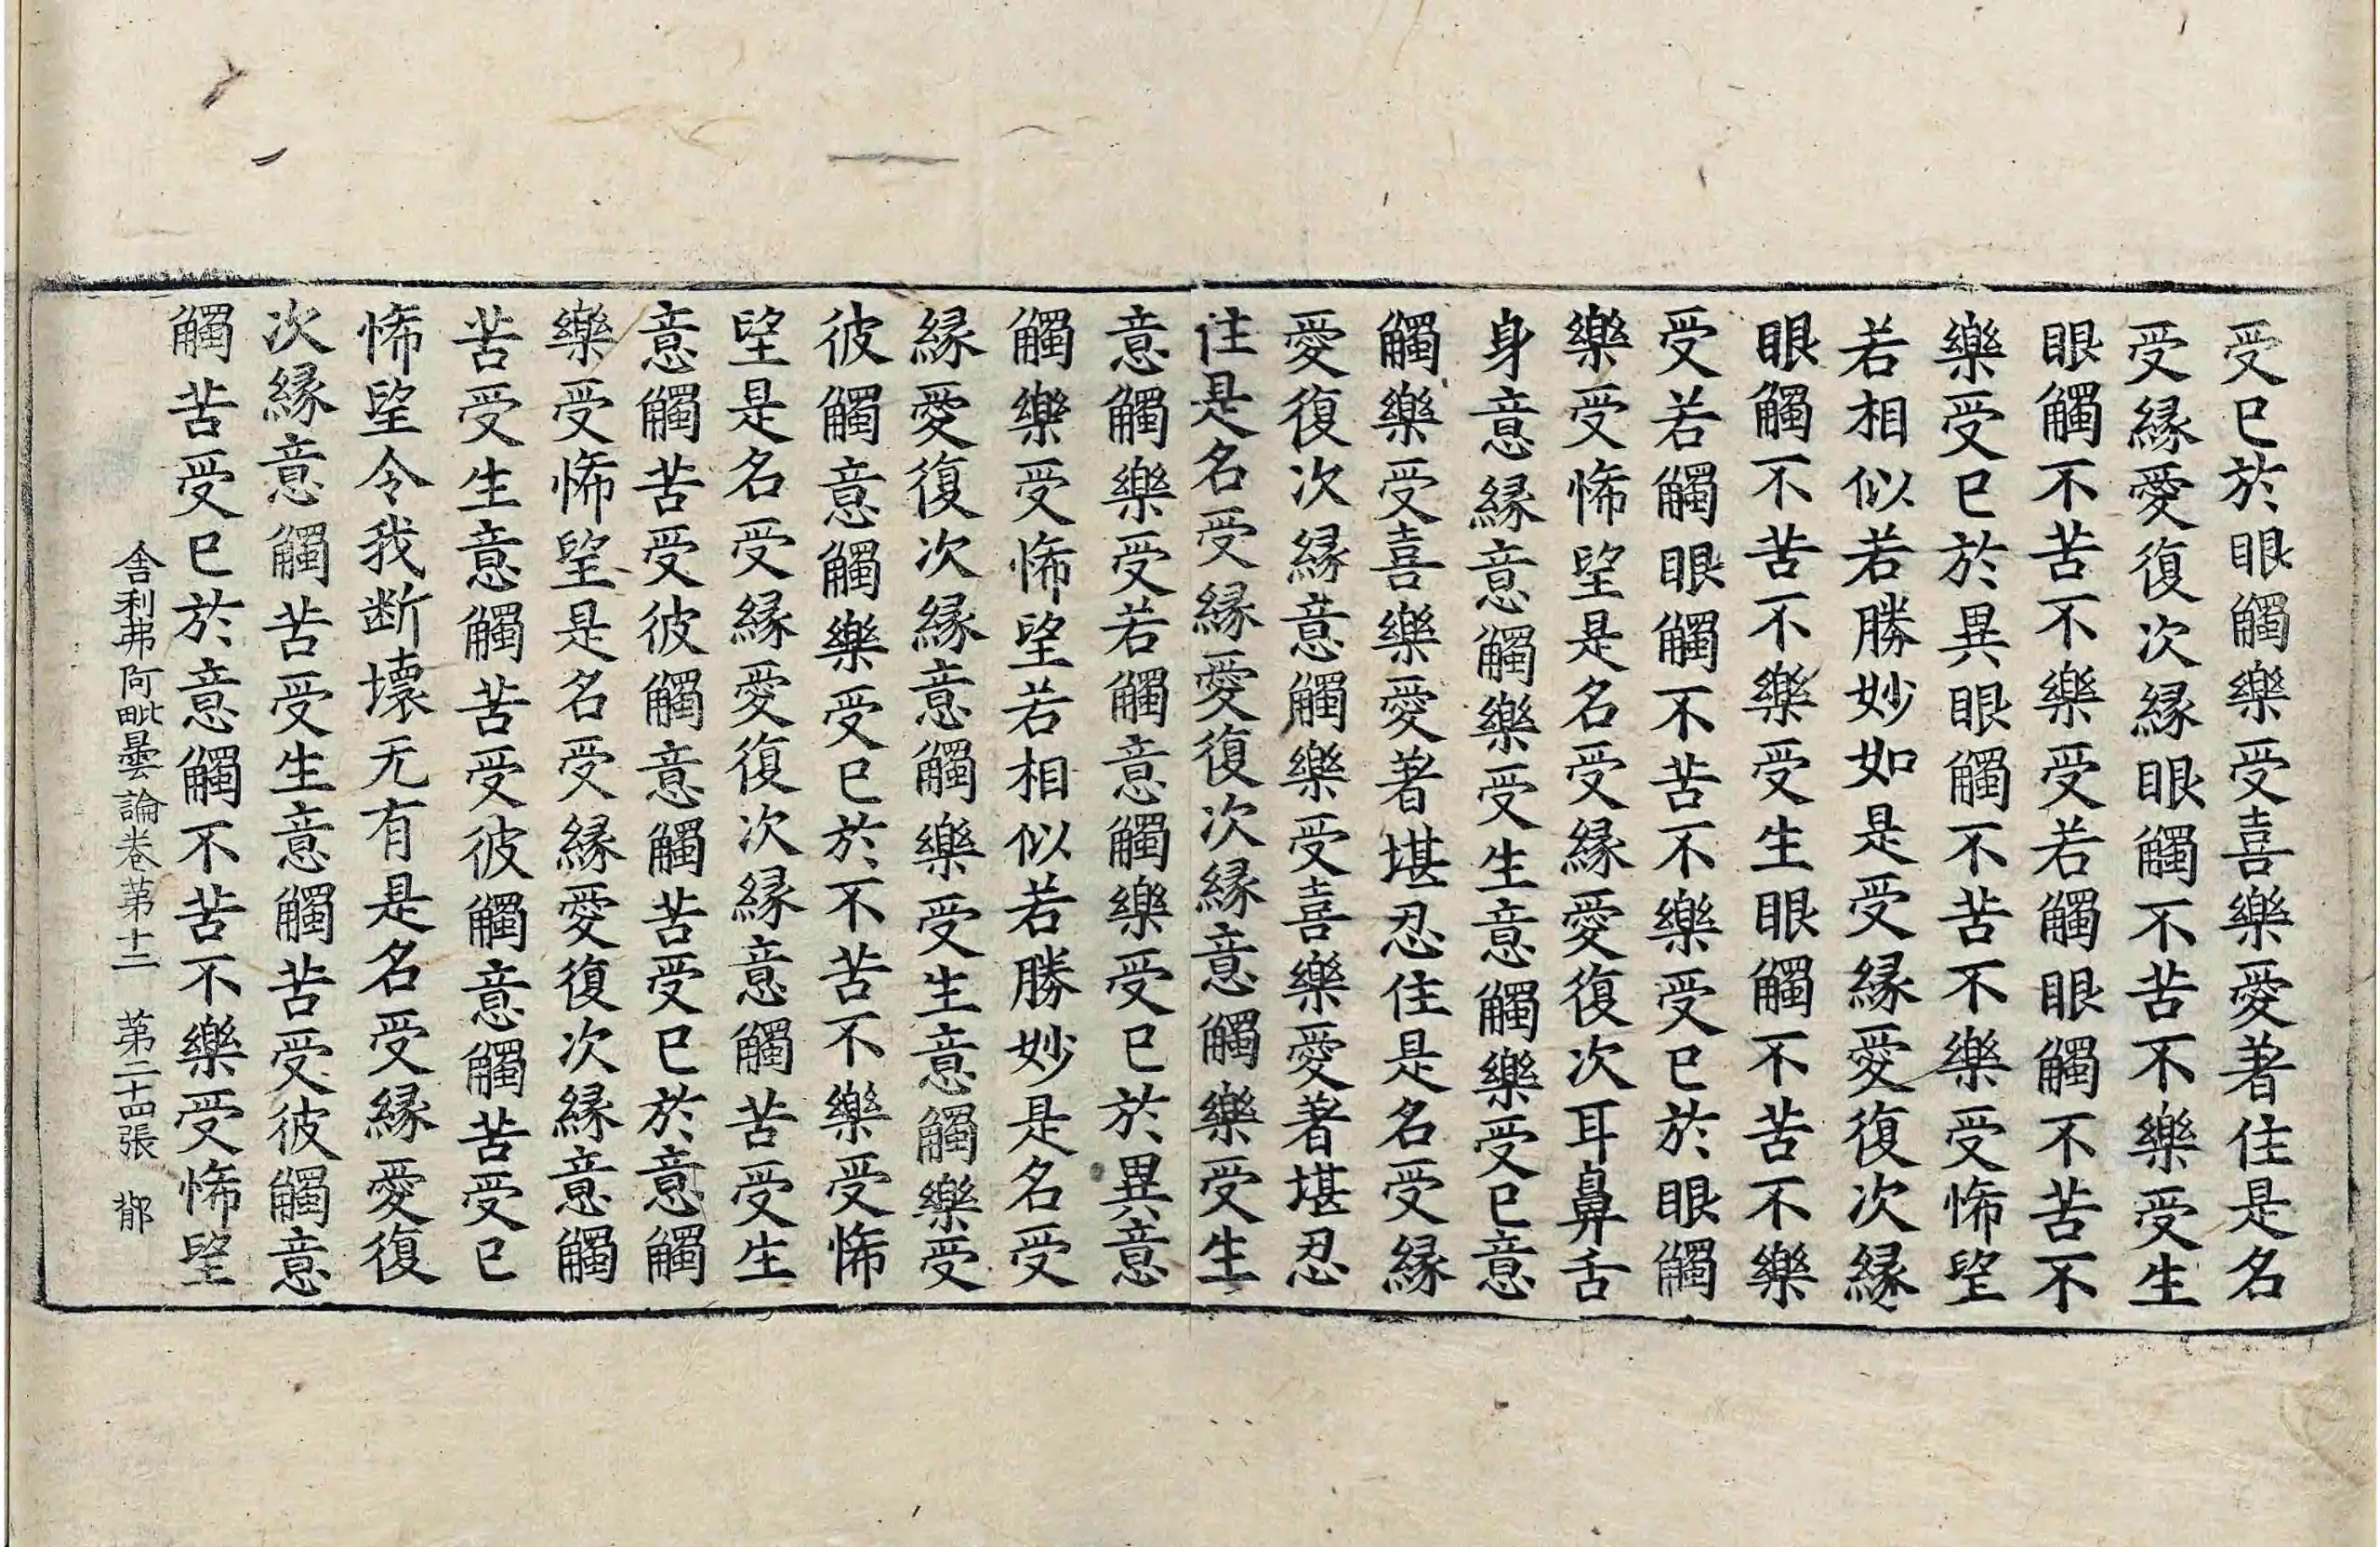 受已於眼觸樂受喜樂愛著住是名
受縁愛復次縁眼觸不苦不樂受生
眼觸不苦不樂受若觸眼觸不苦不
樂受已於異眼觸不苦不樂受悕望
若相似若勝妙如是受縁愛復次縁
眼觸不苦不樂受生眼觸不苦不樂
受若觸眼觸不苦不樂受已於眼觸
樂受悕望是名受縁愛復次耳鼻舌
身意縁意觸樂受生意觸樂受已意
觸樂受喜樂愛著堪忍住是名受縁
愛復次縁意觸樂受喜樂愛著堪忍
住是名受縁愛復次縁意觸樂受生
意觸樂受若觸意觸樂受已於異意
觸樂受悕望若相似若勝妙是名受
縁愛復次縁意觸樂受生意觸樂受
彼觸意觸樂受已於不苦不樂受悕
望是名受縁愛復次縁意觸苦受生
意觸苦受彼觸意觸苦受已於意觸
樂受悕望是名受縁愛復次縁意觸
苦受生意觸苦受彼觸意觸苦受已
悕望令我断壞无有是名受縁愛復
次縁意觸苦受生意觸苦受彼觸意
觸苦受已於意觸不苦不樂受悕望
舎利弗阿毗曇論卷苐十二 苐二十四張 都